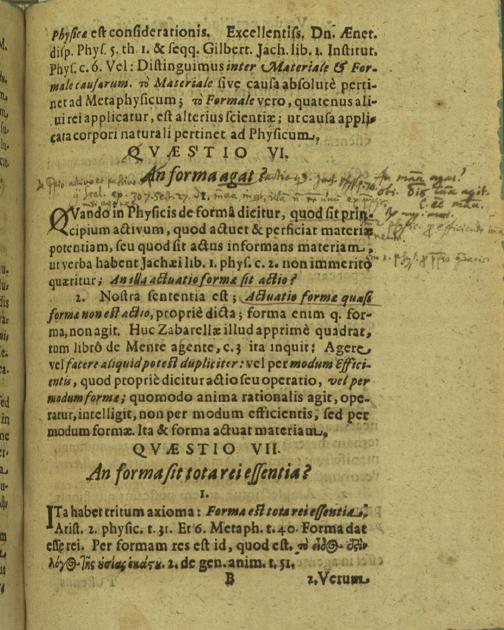 Physicæ est considerationis. Excellentiss. Dn. Ænet.
disp. Phys. 5. th. 1. & seqq. Gilbert. Jach. lib. 1. Institut.
Phys. c. 6. Vel: Distinguimus inter Materiale & For-
male causarum. τὸ Materiale sive causa absolutè perti-
net ad Metaphysicum; τὸ Formale vero, quatenus ali-
ui rei applicatur, est alterius scientiæ; ut causa appli-
cata corpori naturali pertinet ad Physicum.
QVÆSTIO VI.
An forma agat?
QVando in Physicis de formâ dicitur, quod sit prin-
cipium activum, quod actuet & perficiat materiæ
potentiam, seu quod sit actus informans materiam,
ut verba habent Jachæi lib. 1. phys. c. 2. non immeritò
quæritur; An illa actuatio formæ sit actio?
2. Nostra sententia est; Actuatio formæ quasi
formæ non est actio, propriè dicta; forma enim q. for-
ma, non agit. Huc Zabarellæ illud apprimè quadrat,
tom librô de Mente agente, c. 3 ita inquit: Agere
vel facere aliquid potest dupliciter: vel per modum Effici-
entis, quod propriè dicitur actio seu operatio, vel per
modum formæ; quomodo anima rationalis agit, ope-
ratur, intelligit, non per modum efficientis, sed per
modum formæ. Ita & forma actuat materiam.
QVÆSTIO VII.
An forma sit tota rei essentia?
1.
ITa habet tritum axioma: Forma est tota rei essentia.
Arist. 2. physic. t. 31. Et 6. Metaph. t. 40. Forma dat
esse rei. Per formam res est id, quod est.
2. de gen. anim. t. 51.
B 2. Verum